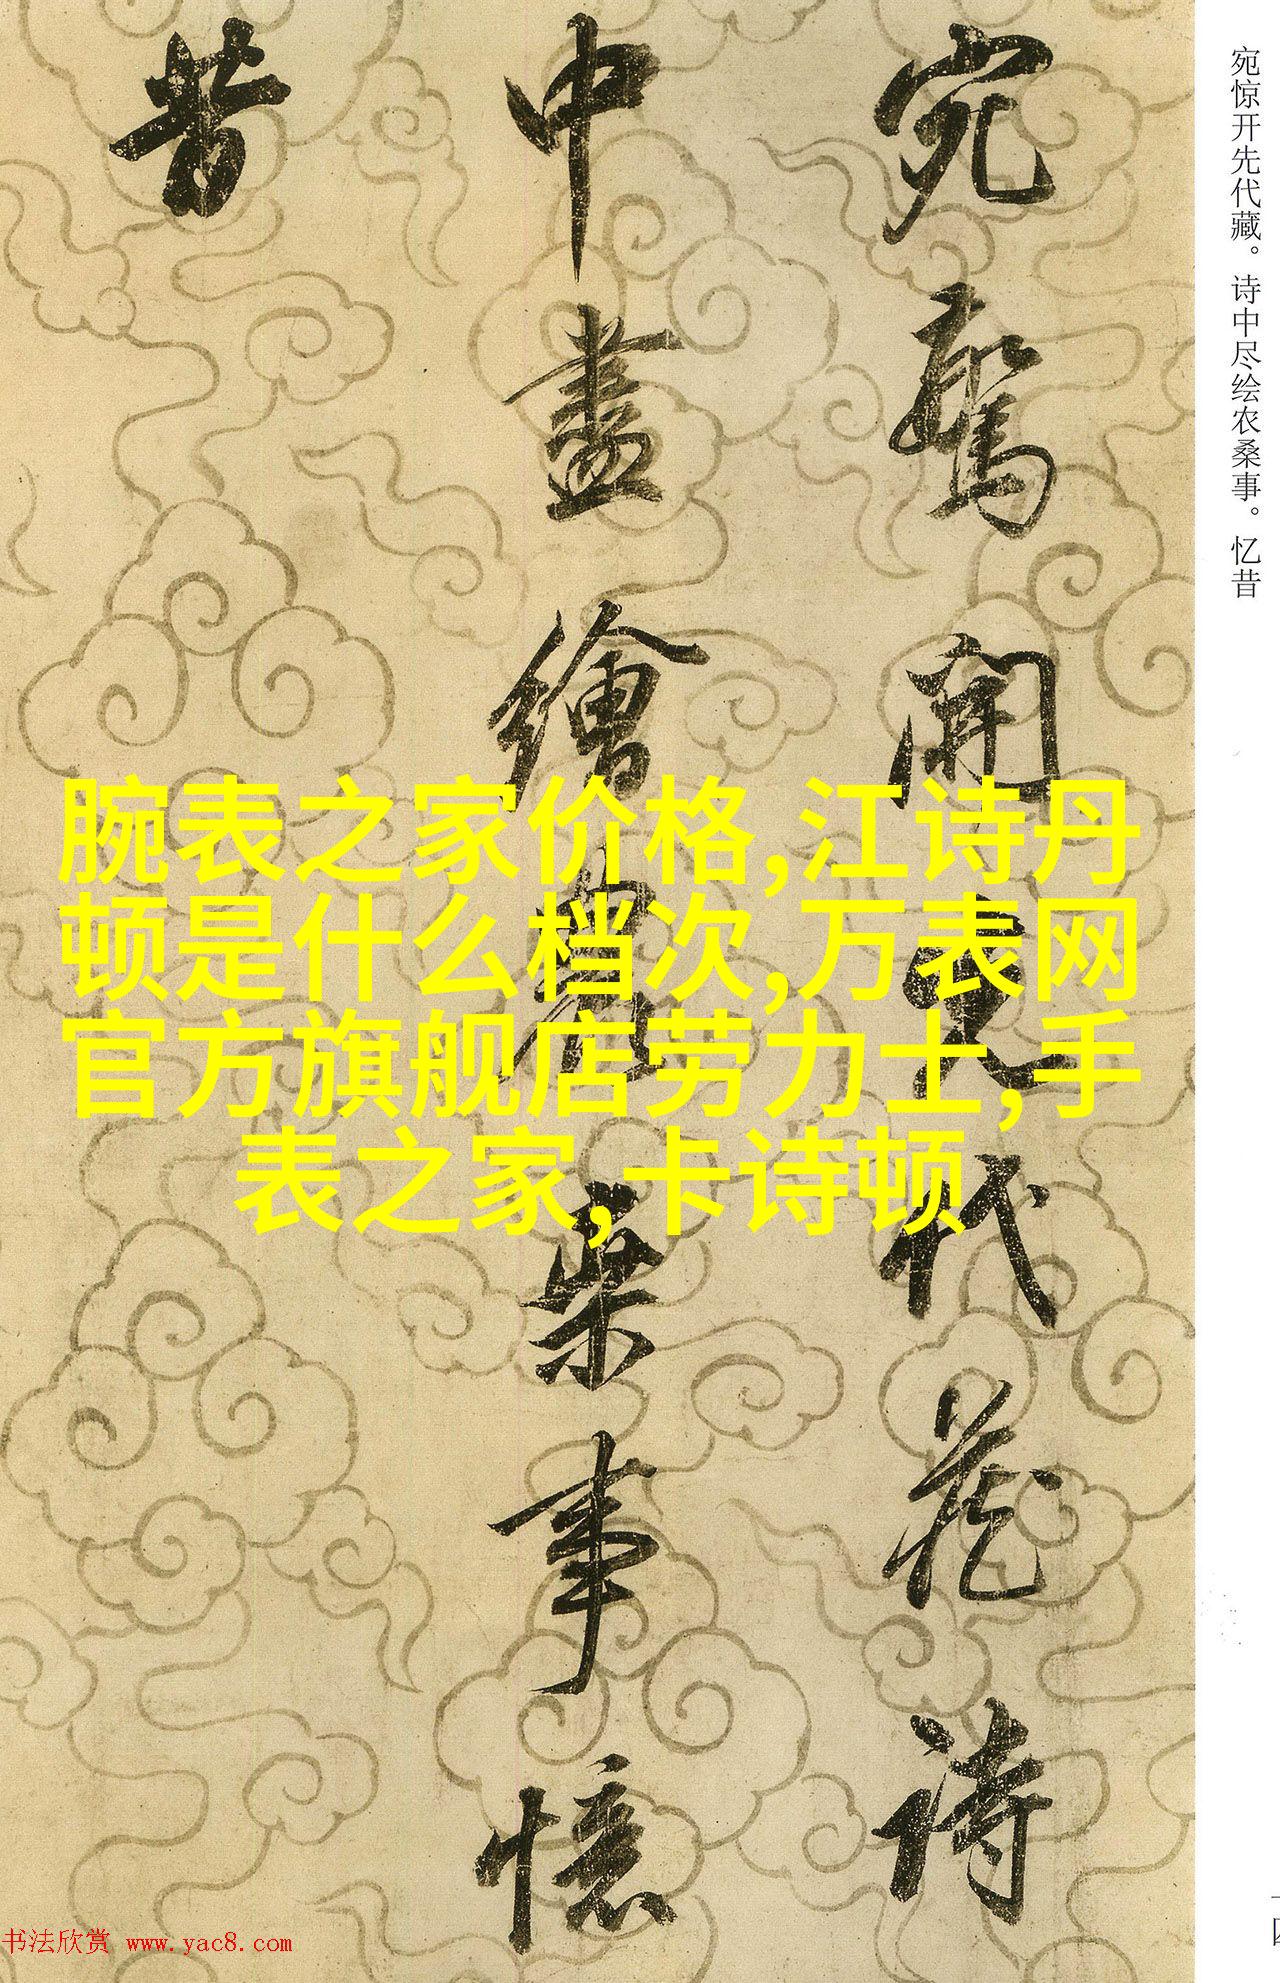 宛惊开先代藏。诗中尽绘农桑事。忆昔
宛驚開先代藏詩
中盡繪農桑事憶
昔
腕表之家价格,江诗丹
顿是什么档次,万表网
官方旗舰店劳力士,手
表之家, 卡诗顿
书法欣赏 www.yac8.com